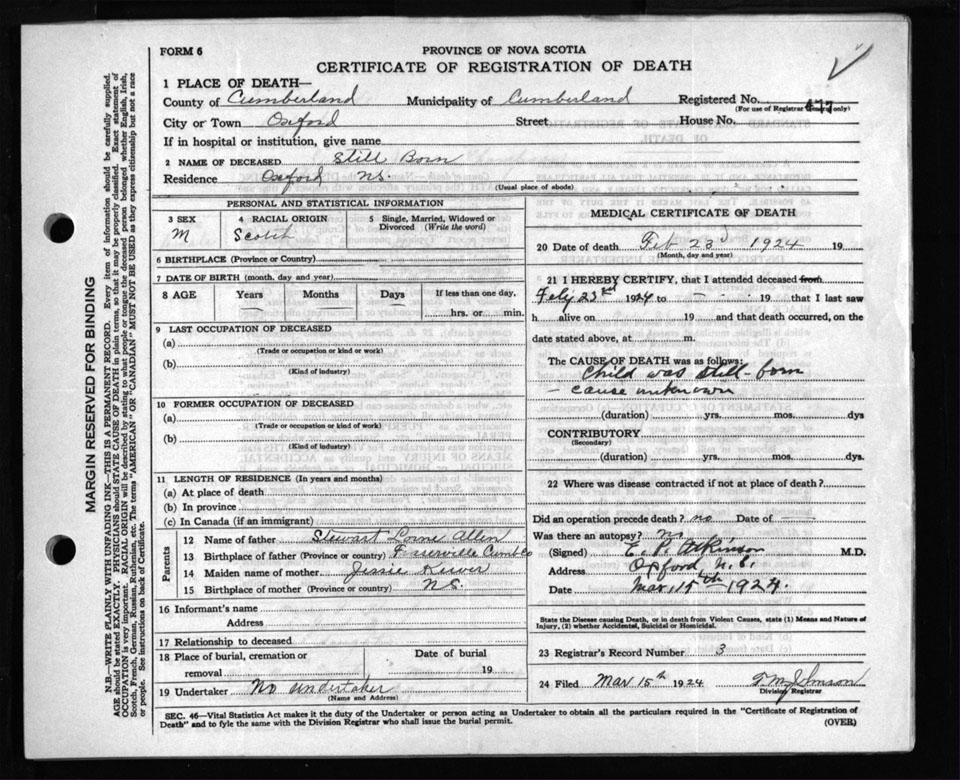 FORM 6
PROVINCE OF NOVA SCOTIA
CERTIFICATE OF REGISTRATION OF DEATH
1 PLACE OF DEATH—
County of Cumberland Municipality of Cumberland Registered No. 477
(For use of Registrar only)
City or Town Oxford Street House No.
If in hospital or institution, give name
2 NAME OF DECEASED Still Born
Residence Oxford N.S.
(Usual place of abode)
PERSONAL AND STATISTICAL INFORMATION
3 SEX 4 RACIAL ORIGIN 5 Single, Married, Widowed or Divorced (Write the word)
M Scotch
6 BIRTHPLACE (Province or Country)
7 DATE OF BIRTH (month, day and year)
8 AGE Years Months Days If less than one day,
— — hrs. or min.
9 LAST OCCUPATION OF DECEASED
(a)
(Trade or occupation or kind or work)
(b)
(Kind of industry)
10 FORMER OCCUPATION OF DECEASED
(a)
(Trade or occupation or kind of work)
(b)
(Kind of industry)
11 LENGTH OF RESIDENCE (In years and months)
(a) At place of death
(b) In province
(c) In Canada (if an immigrant)
Parents
12 Name of father Stewart Lorne Allen
13 Birthplace of father (Province or country) Cumb Co
14 Maiden name of mother Jessie
15 Birthplace of mother (Province or country) N.S.
16 Informant's name
Address
17 Relationship to deceased
18 Place of burial, cremation or removal Date of burial
19
19 Undertaker No Undertaker
(Name and Address)
MEDICAL CERTIFICATE OF DEATH
20 Date of death Feb 23d 1924 19
(Month, day and year)
21 I HEREBY CERTIFY, that I attended deceased from
Feby 23rd 1924 to — - - 19 that I last saw
h alive on 19 and that death occurred, on
date stated above, at m.
The CAUSE OF DEATH was as follows:
Child was still-born
- cause unknown
(duration) yrs. mos. dys
CONTRIBUTORY
(Secondary)
(duration) yrs. mos. dys
22 Where was disease contracted if not at place of death?
Did an operation precede death? no Date of
Was there an autopsy? no
(Signed) Atkinson M.D.
Address Oxford N.S.
Date Mar 15th 1924.
State the Disease causing Death, or in death from Violent Causes, state (1) Means and Nature of Injury, (2) whether Accidental, Suicidal or Homicidal.
23 Registrar's Record Number 3
24 Filed Mar 15th 1924
Division Registrar
SEC. 46—Vital Statistics Act makes it the duty of the Undertaker or person acting as Undertaker to obtain all the particulars required in the "Certificate of Registration of
Death" and to fyle the same with the Division Registrar who shall issue the burial permit.
(OVER)
MARGIN RESERVED FOR BINDING
N.B.—WRITE PLAINLY WITH UNFADING INK—THIS IS A PERMANENT RECORD. Every item of information should be carefully supplied.
AGE should be stated EXACTLY. PHYSICIANS should STATE CAUSE OF DEATH in plain terms, so that it may be properly classified. Exact statement of
OCCUPATION is very important. RACIAL ORIGIN will be described by stating to what people or tongue the deceased person belonged whether English, Irish,
Scotch, French, German, Russian, Ruthenian, etc. The terms "AMERICAN" OR "CANADIAN" MUST NOT BE USED as they express citizenship but not a race
or people. See instructions on back of Certificate.